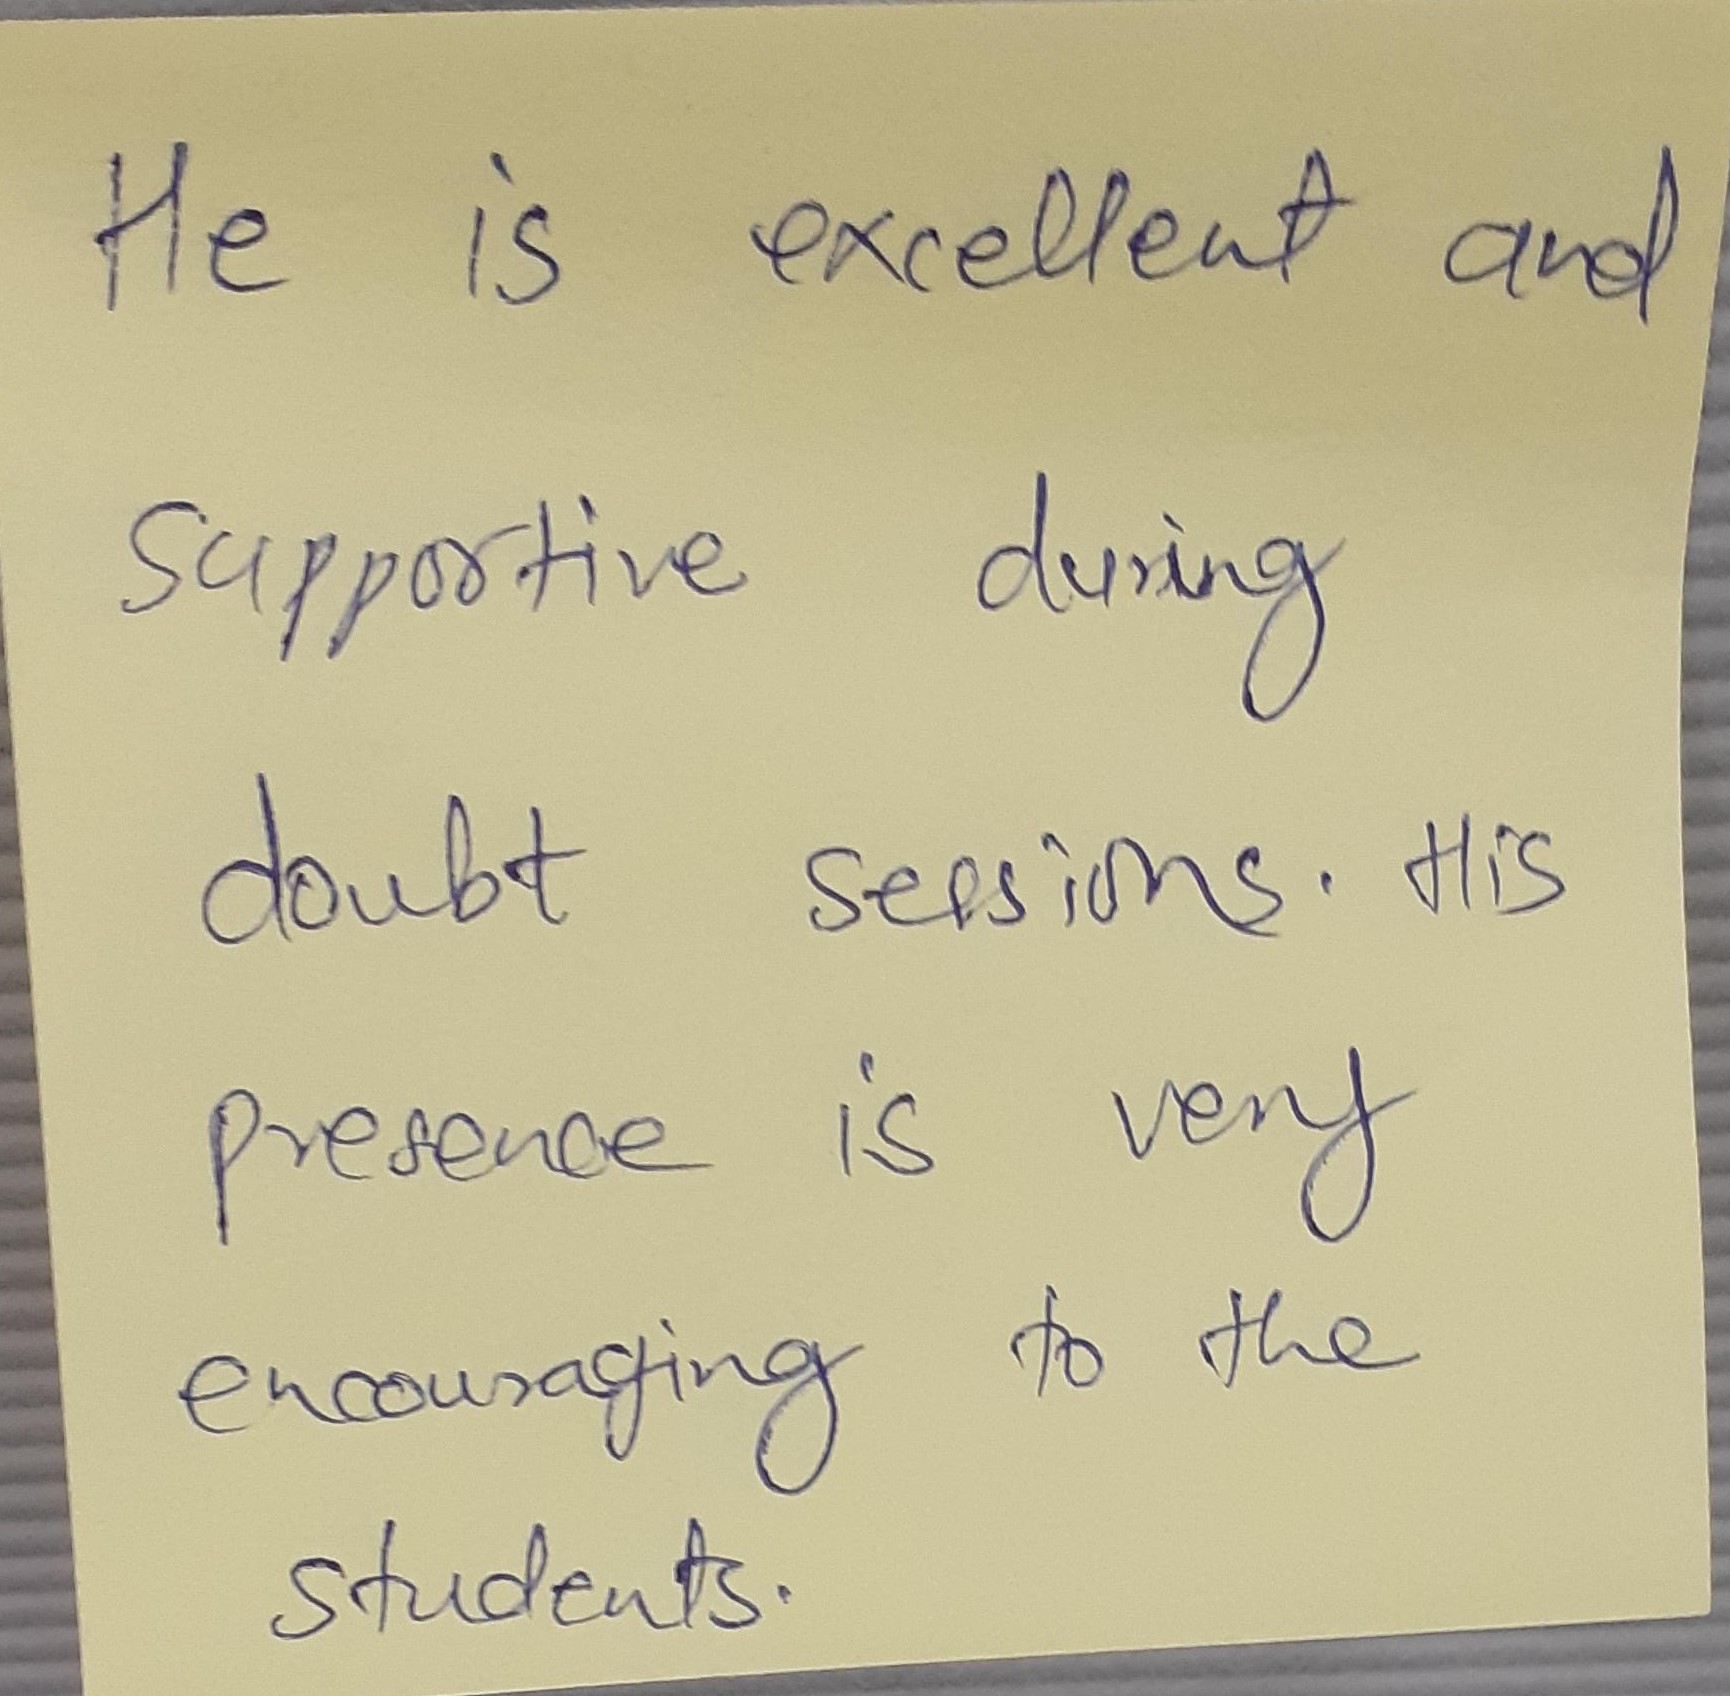 He is excellent and
supportive during
doubt sessions. His
presence is very
encouraging to the
students.